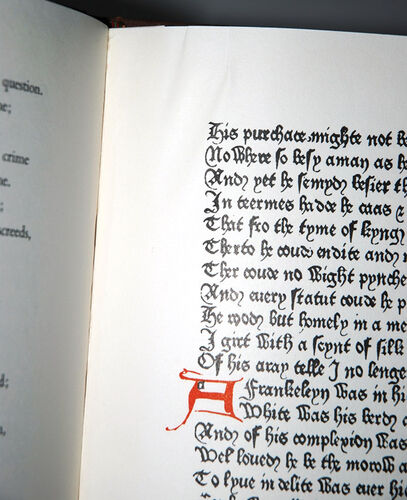 question.
e;
crime
e.
;
screeds,
d;
,
His purchace mighte not be
NoWhere so besy aman as he
Andy yet he semydy besier th
In teermes hadde he caas &
That fro the tyme of kyngy
Therto he coude endite andy
Ther coude no Wight pynche
Andy euery statut coude he p
He rody but homely in a me
I girt With a seynt of silk
Of his aray telle J no lenge
A Frankeleyn Was in hi
White Was his berdy a
Andy of his complexion Was
Wel louedy he be the morow a
To lyue in delite Was euer hi